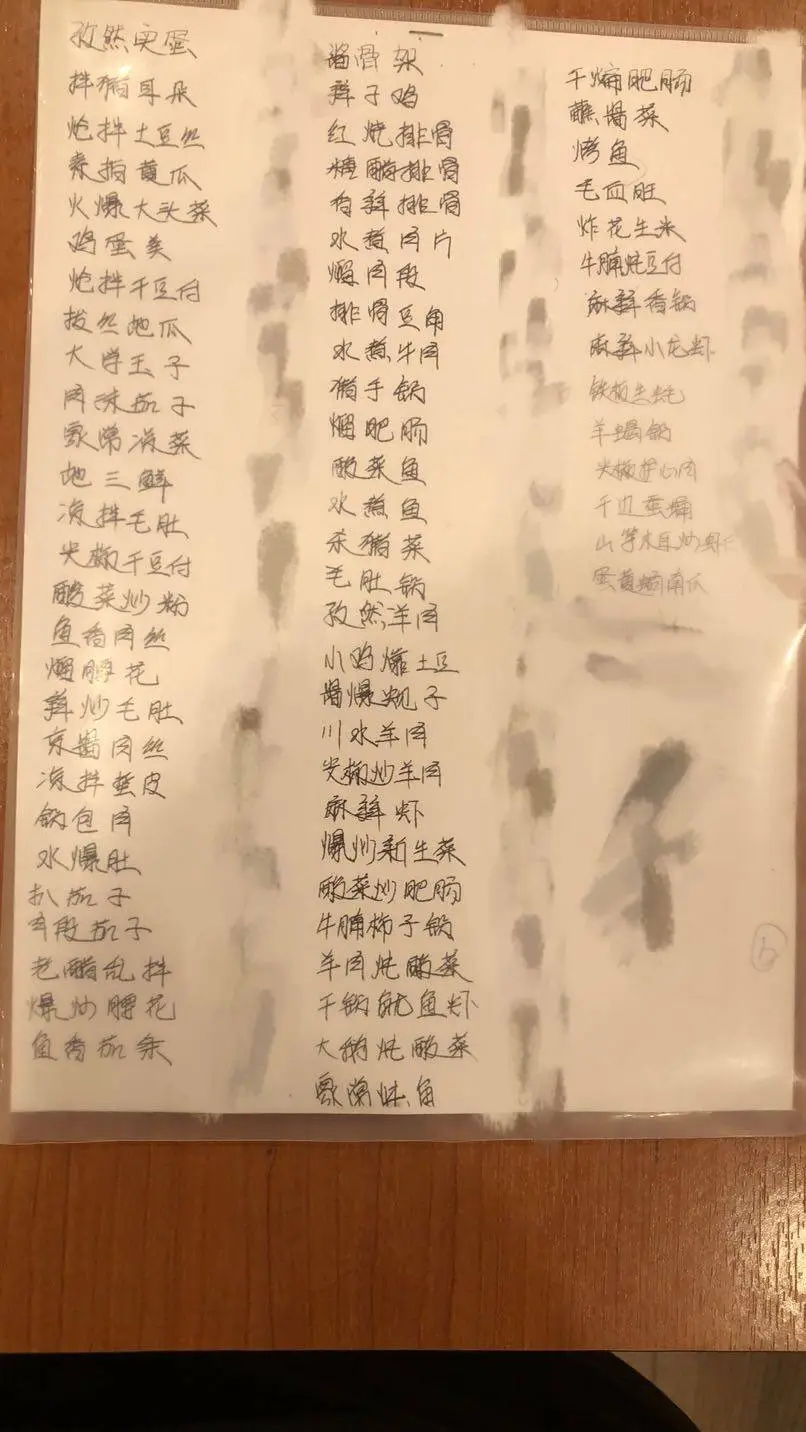 孜然实蛋
拌猪耳朵
炝拌土豆丝
素拍黄瓜
火爆大头菜
鸡蛋羹
炝拌干豆付
拔丝地瓜
大学王子
肉沫茄子
家常凉菜
地三鲜
凉拌毛肚
尖椒干豆付
酸菜炒粉
鱼香肉丝
熘腰花
辣炒毛肚
京酱肉丝
凉拌蜇皮
锅包肉
水爆肚
扒茄子
肉段茄子
老醋乱拌
爆炒腰花
鱼香茄条
酱骨架
辣子鸡
红烧排骨
糖醋排骨
香辣排骨
水煮肉片
熘肉段
排骨豆角
水煮牛肉
猪手锅
熘肥肠
酸菜鱼
水煮鱼
杀猪菜
毛肚锅
孜然羊肉
小鸡炖土豆
酱爆蚬子
川水羊肉
尖椒炒羊肉
麻辣虾
爆炒新生菜
酸菜炒肥肠
牛腩柿子锅
羊肉炖酸菜
干锅鱿鱼虾
大鹅炖酸菜
家常炖鱼
干煸肥肠
蘸酱菜
烤鱼
毛血旺
炸花生米
牛腩炖豆付
麻辣香锅
麻辣小龙虾
铁板生蚝
羊蝎锅
尖椒护心肉
干边蚕蛹
山芹木耳炒虾
蛋黄焗南瓜